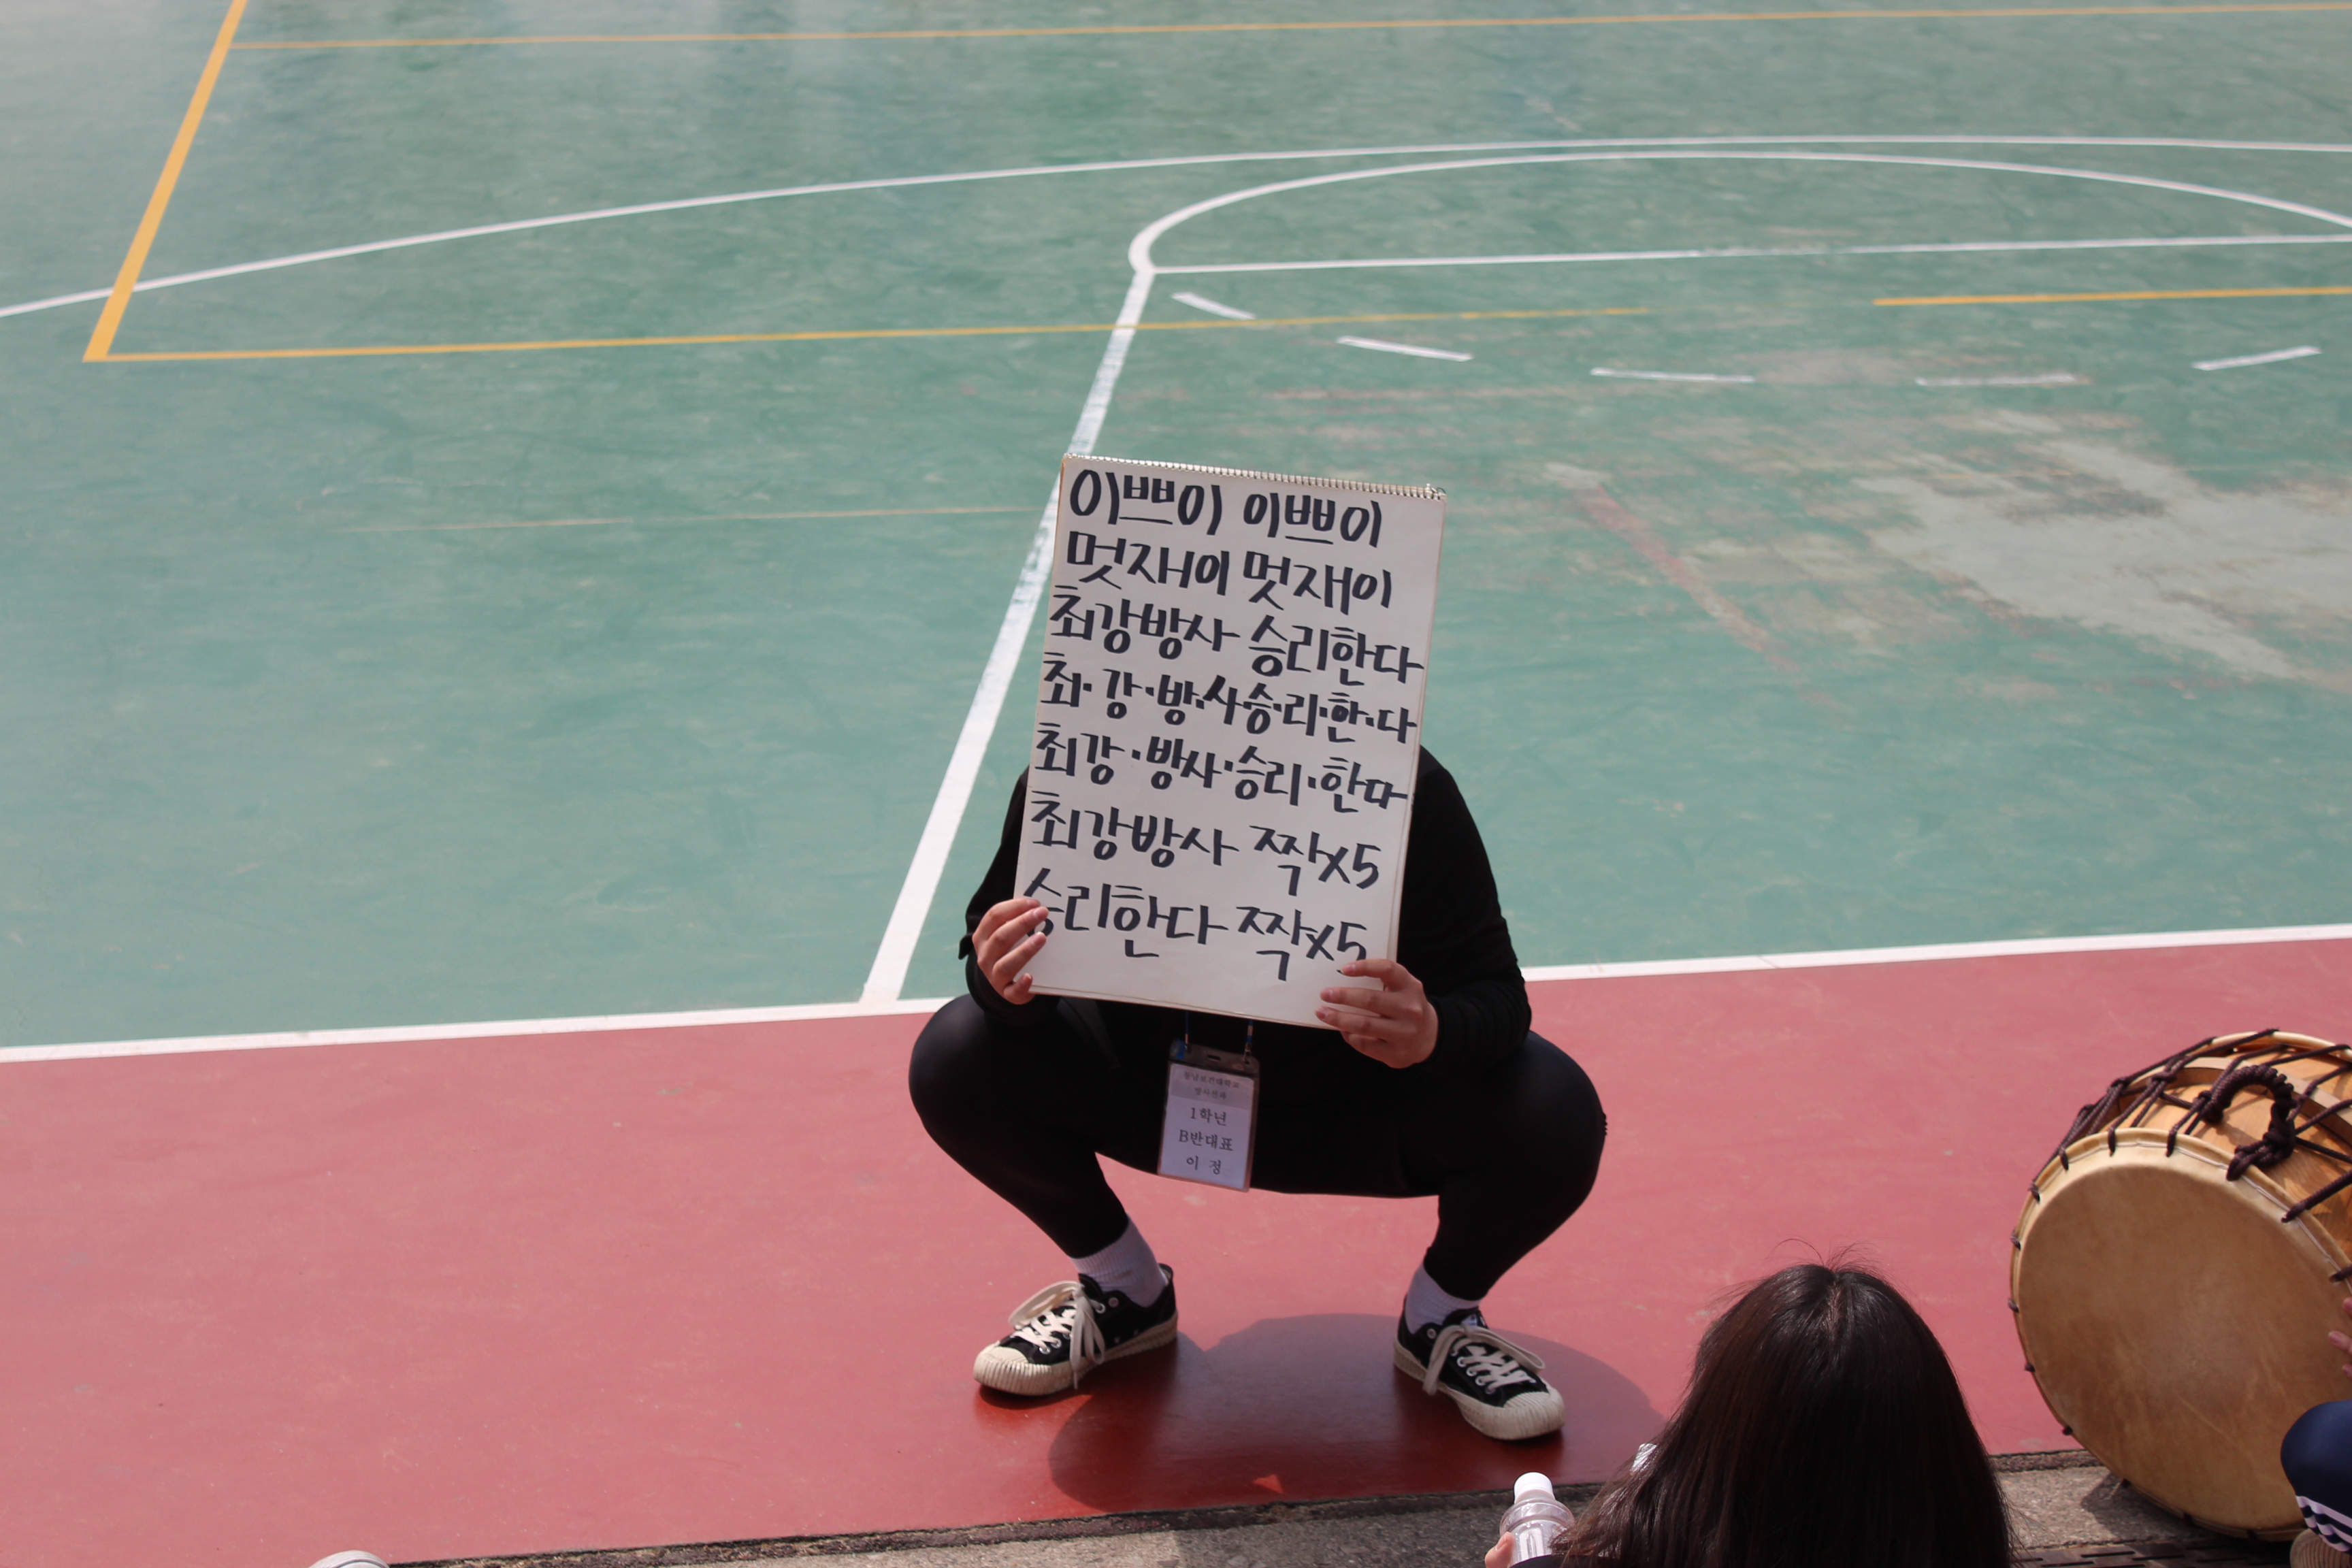 이쁘이 이쁘이
멋재이 멋재이
최강방사 승리한다
최·강·방·사승·리·한·다
최강·방사·승리·한다
최강방사 짝x5
승리한다 짝x5
1학년
B반대표
이 정